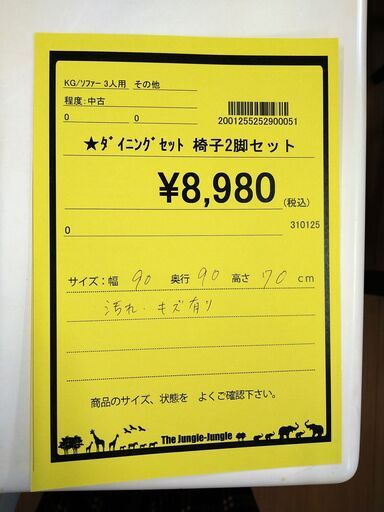 KG/ソファー 3人用 その他
程度:中古
0 0
2001255252900051
★ダイニングセット 椅子2脚セット
¥8,980(税込)
0 310125
サイズ:幅 90 奥行 90 高さ 70 cm
汚れ・キズ有り
商品のサイズ、状態を よくご確認下さい。
The Jungle-Jungle